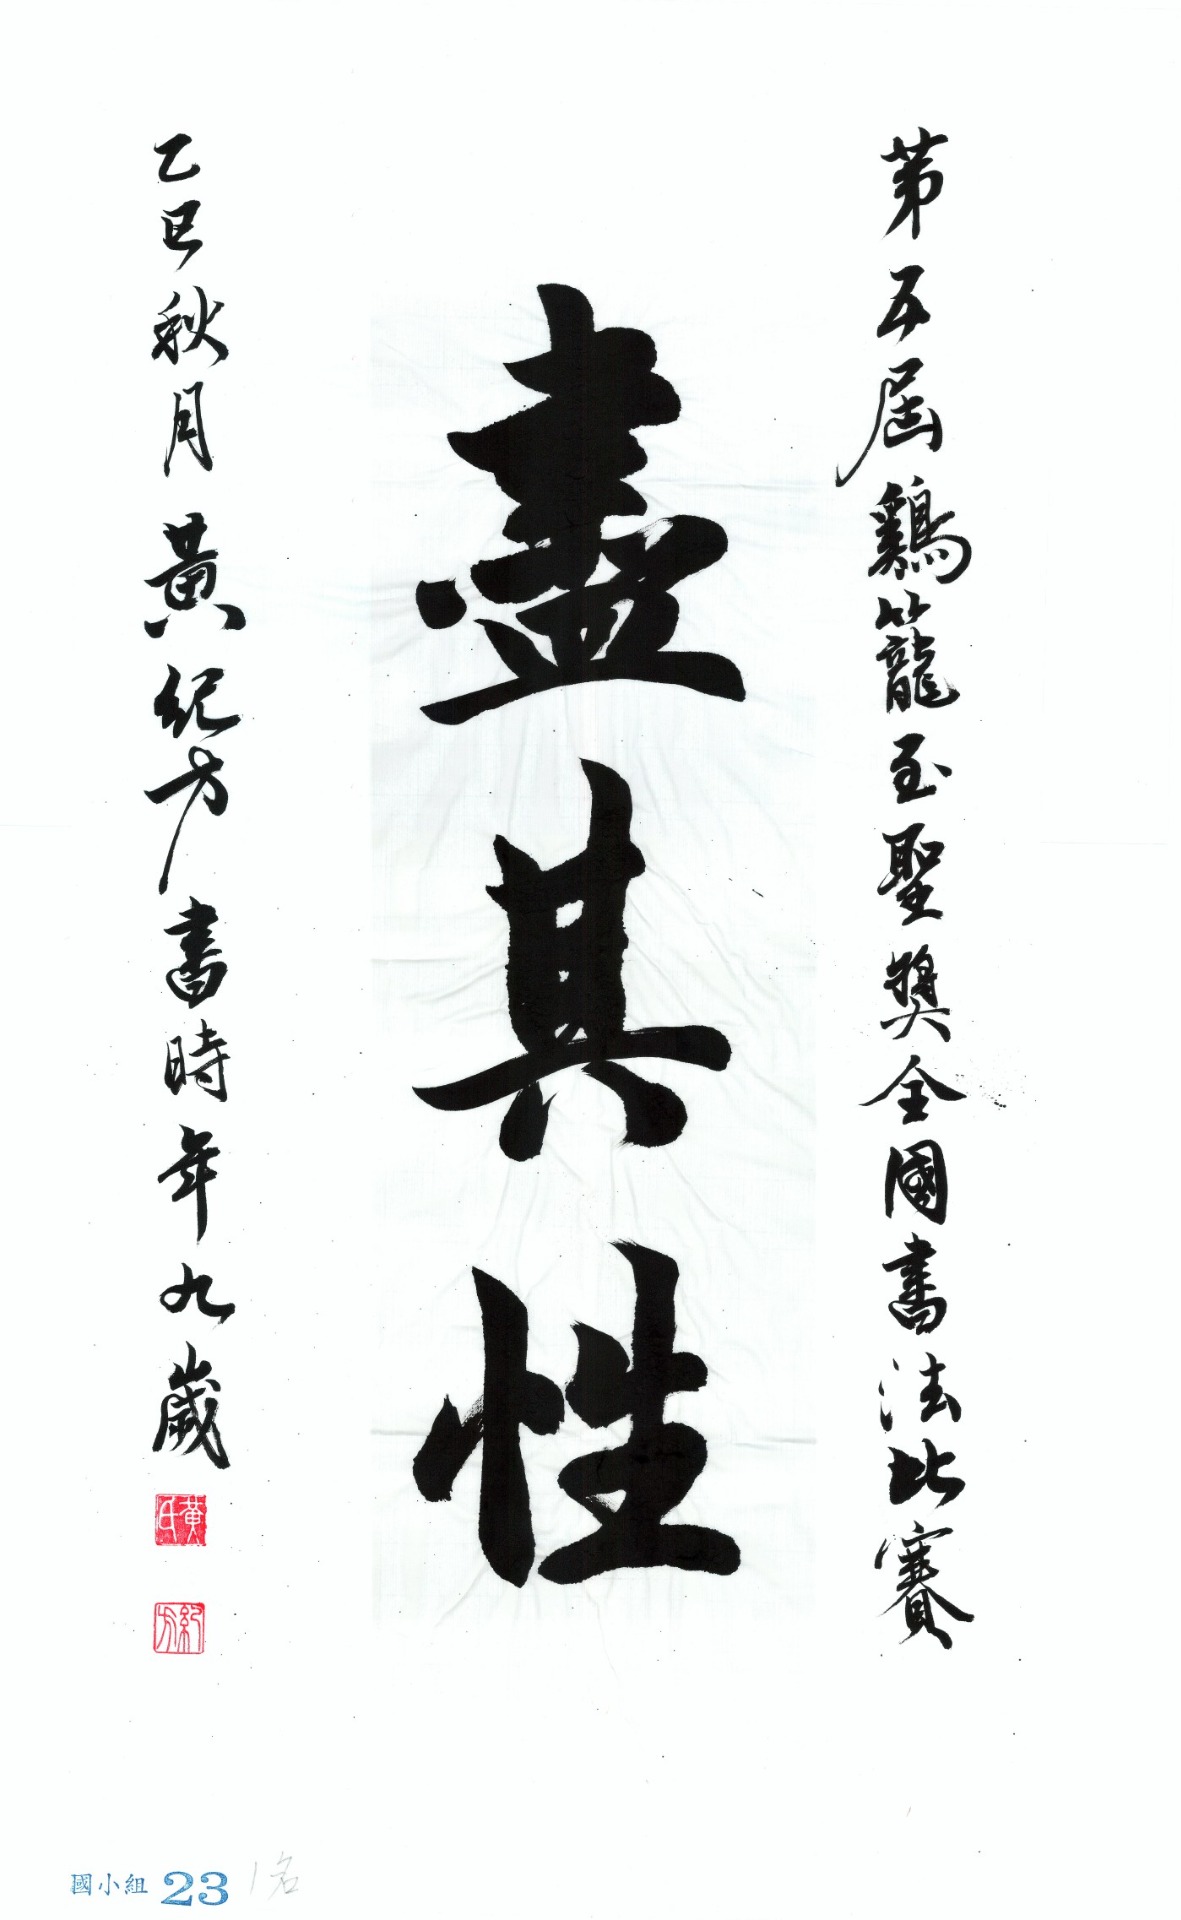 第五屆鷄籠至聖獎全國書法比賽
盡其性
乙巳秋月黃紀方書時年九歲
黃氏
紀方
國小組 23 1名